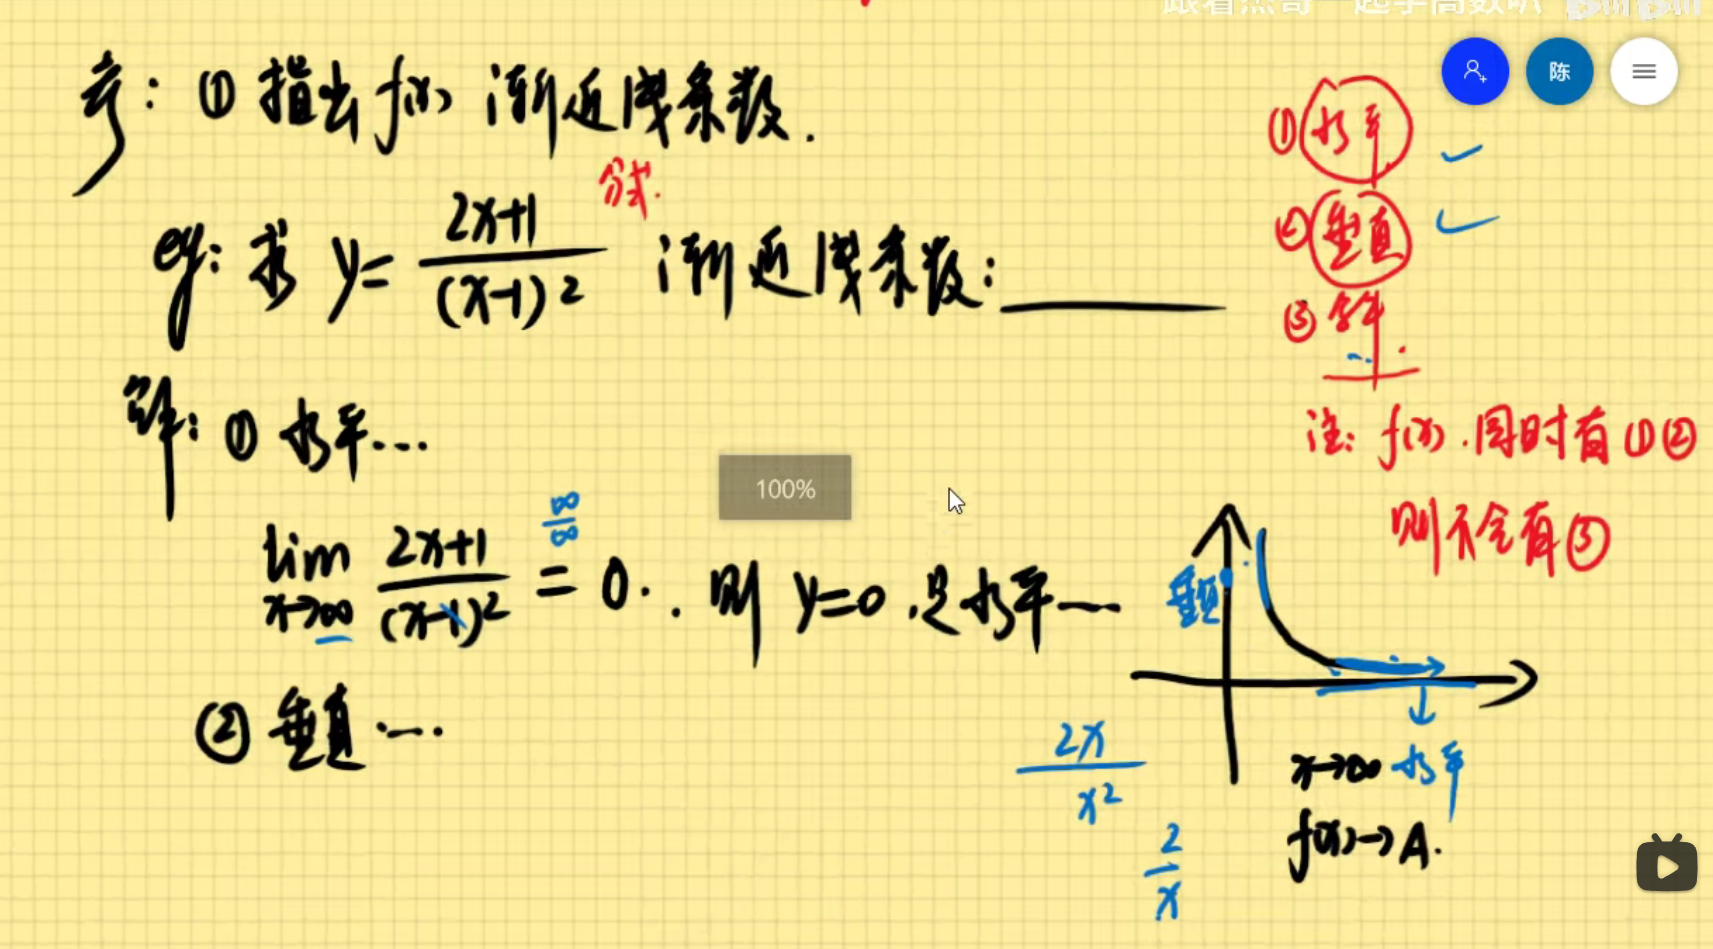 跟着杰哥一起学高数叭 bilibili
陈
考: ① 指出 f(x) 渐近线条数.
eg: 求 y= \frac{2x+1}{(x-1)^2} 渐近线条数: ______
分式.
解: ① 水平...
lim x→∞ \frac{2x+1}{(x-1)^2} = 0. 则 y=0 是水平……
\frac{∞}{∞}
② 垂直……
100%
① 水平 ✓
② 垂直 ✓
③ 斜
注: f(x). 同时有 ①②
则不会有 ③
垂直
x→∞ 水平
f(x)→A.
\frac{2x}{x^2}
\frac{2}{x}